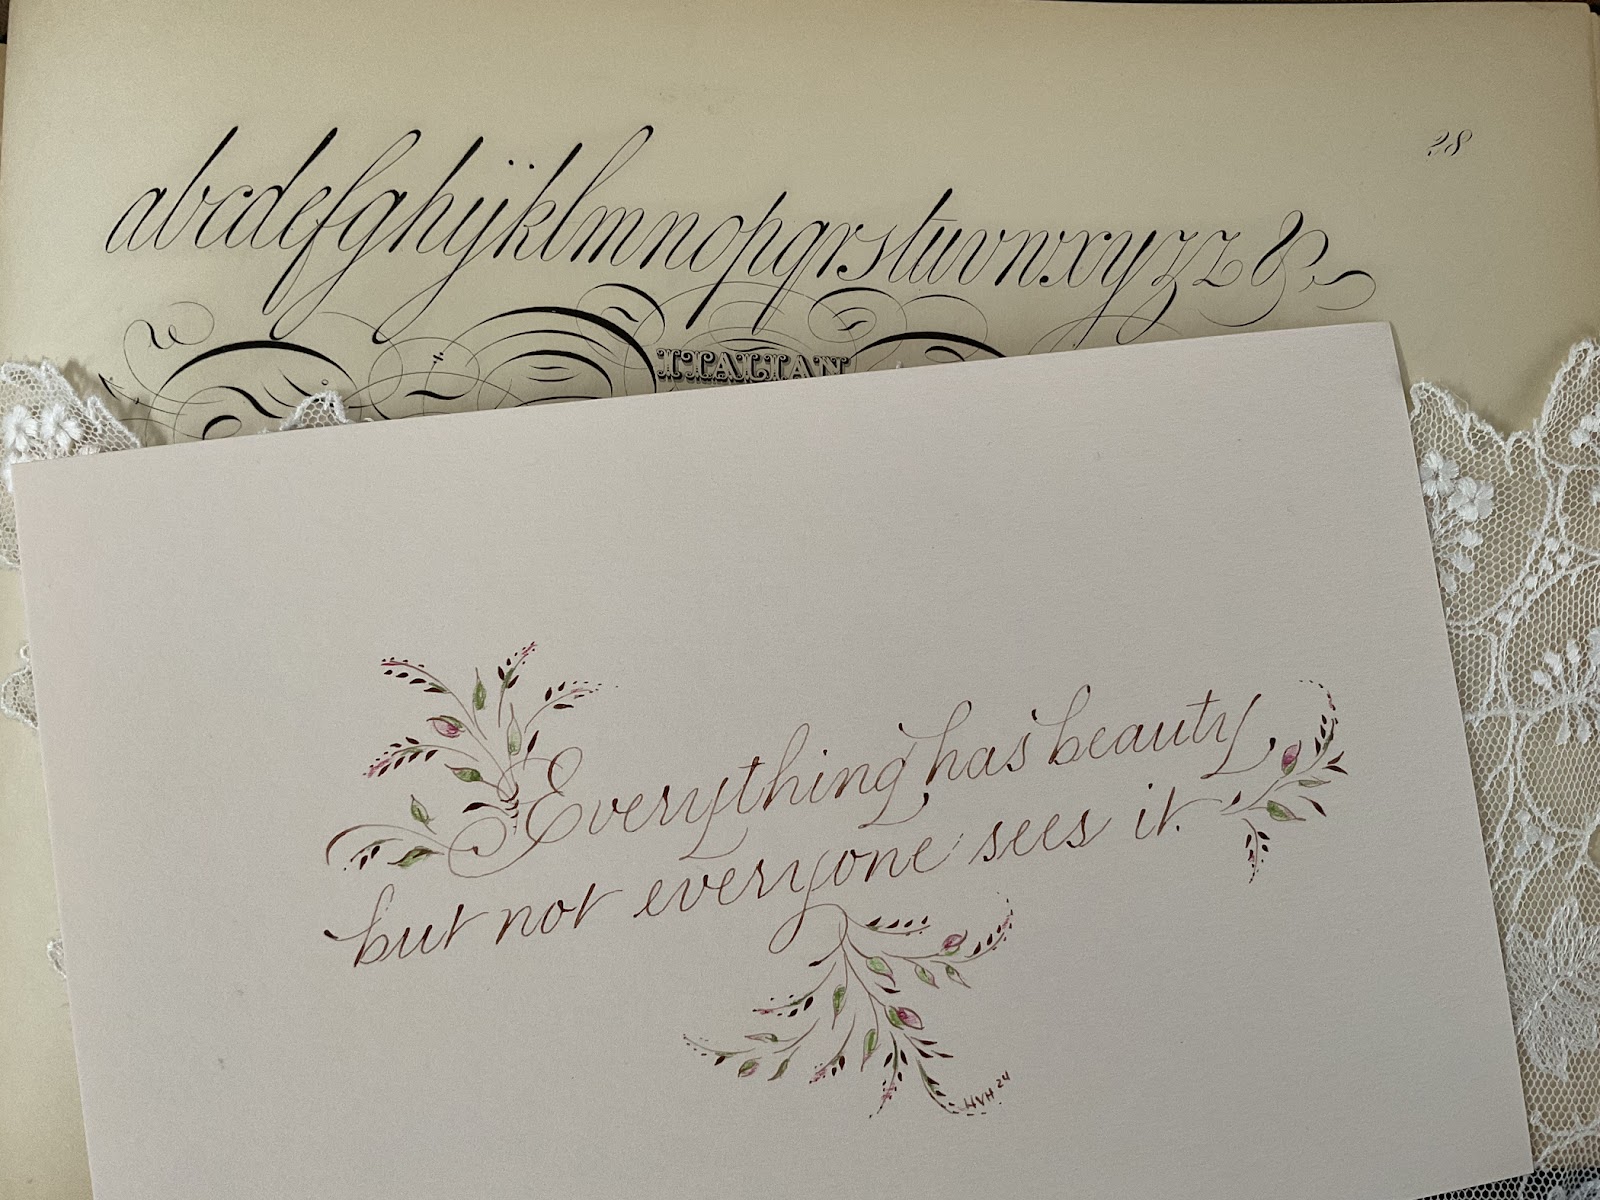 28
abcdefghijklmnopqrstuvwxyzz&
ITALIAN
Everything has beauty,
but not everyone sees it.
HVH 24